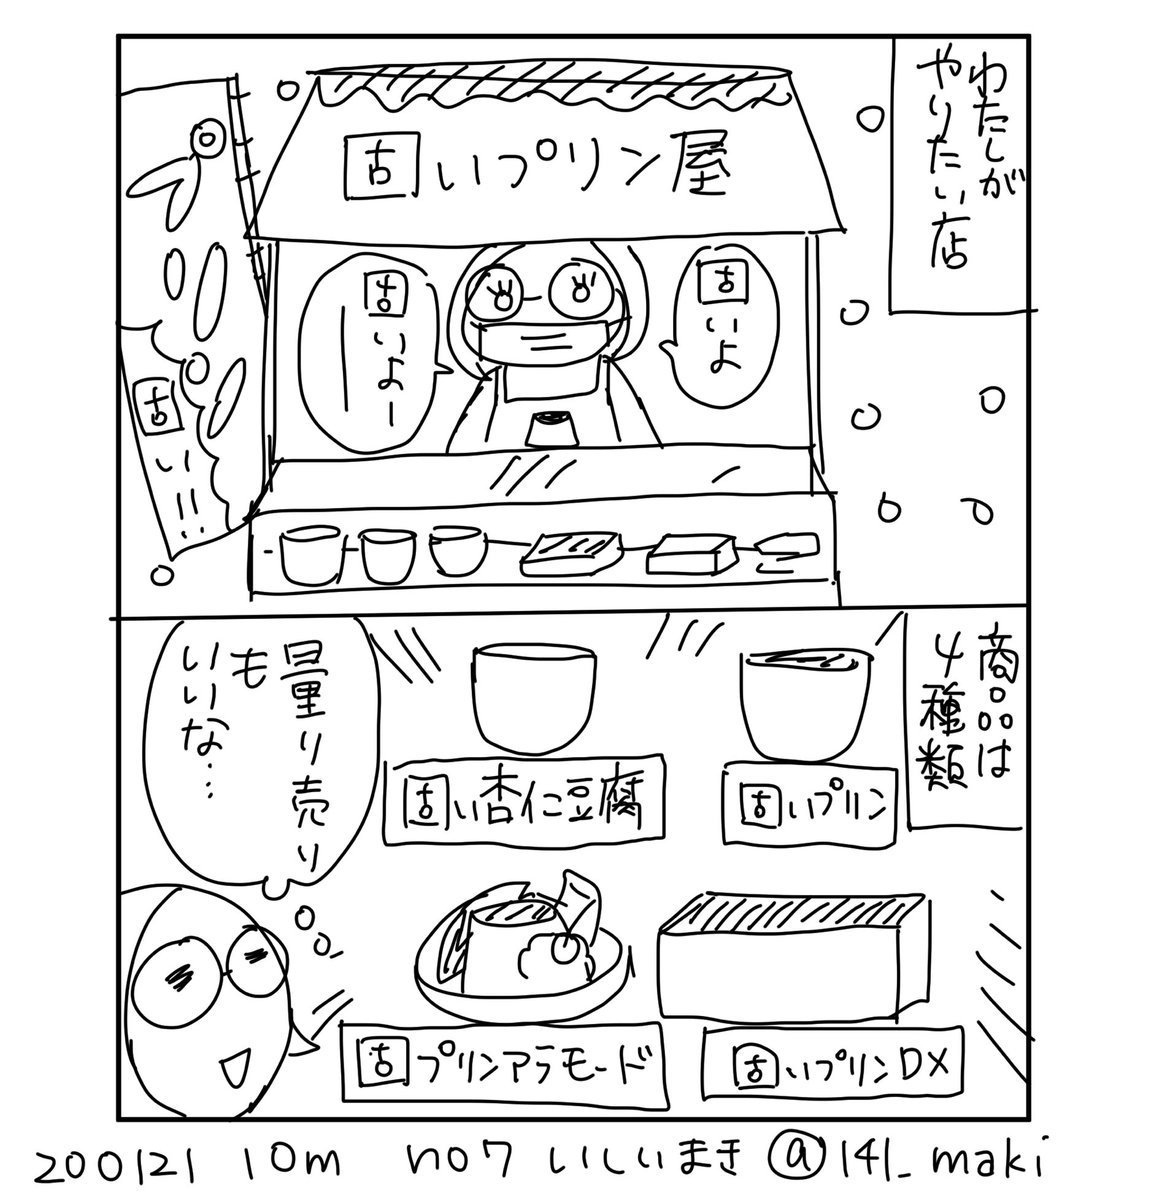 わたしが
やりたい店
固いプリン屋
固いよ
固いよー
固い!!
商品は
4種類
固いプリン
固い杏仁豆腐
固いプリンDX
固プリンアラモード
量り売り
も
いいな…
200121 10m no7 いしいまき @141_maki